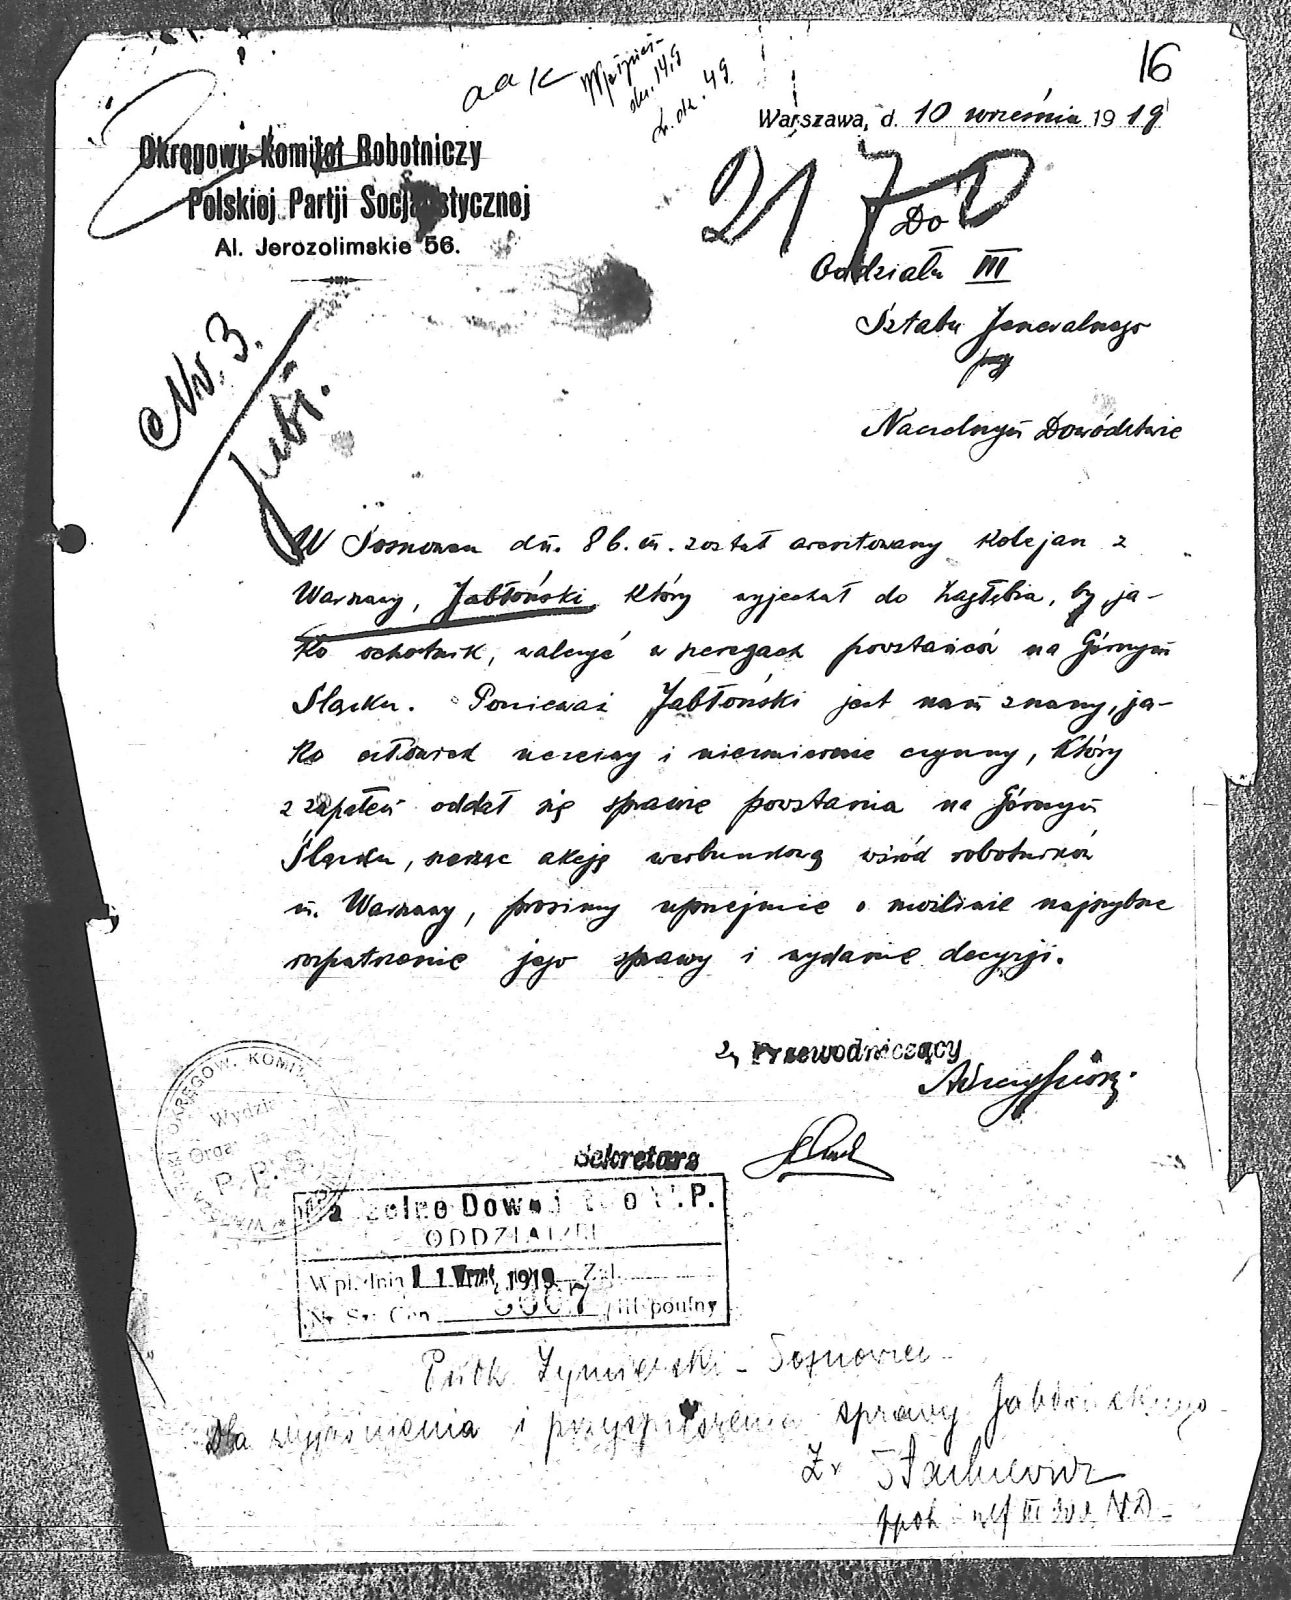 16
a a K
dn. 14.9
Warszawa, d. 10 września 1919
Okręgowy Komitet Robotniczy
Polskiej Partji Socjalistycznej
Al. Jerozolimskie 56.
21 7 D
Do
Oddziału III
Sztabu Jeneralnego
przy
Naczelnym Dowództwie
Nr. 3.
W Sosnowcu dn. 8 b. m. został aresztowany kolejarz z
Warszawy, Jabłoński, który wyjechał do Zagłębia, by, ja-
ko ochotnik, walczyć w szeregach powstańców na Górnym
Śląsku. Ponieważ Jabłoński jest nam znany, ja-
ko człowiek uczciwy i niezmiernie czynny, który
z zapałem oddał się sprawie powstania na Górnym
Śląsku, szerząc akcję werbunkową wśród robotników
m. Warszawy, prosimy uprzejmie o możliwie najszybsze
rozpatrzenie jego sprawy i wydanie decyzji.
Przewodniczący
Sekretarz
OKRĘGOW. KOMIT.
Wydział
P.P.S.
Naczelne Dowództwo W.P.
ODDZIAŁ III
W pł. dnia 11 Wrze. 1919 Zał.
Nr. Szt. Gen. /III poufny
Pułk. Żymierski - Sosnowiec -
Dla wyjaśnienia i przyspieszenia sprawy Jabłońskiego -
Stachiewicz
ppłk i szef III Od. N.D. -